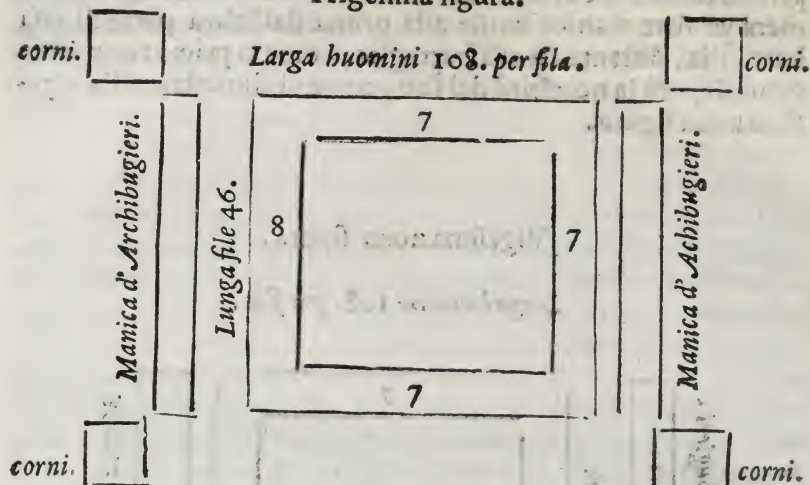 Trigesima figura.
corni.
Larga huomini 108. per fila.
corni.
Manica d'Archibugieri.
Lunga file 46.
7
8
7
7
Manica d'Achibugieri.
corni.
corni.